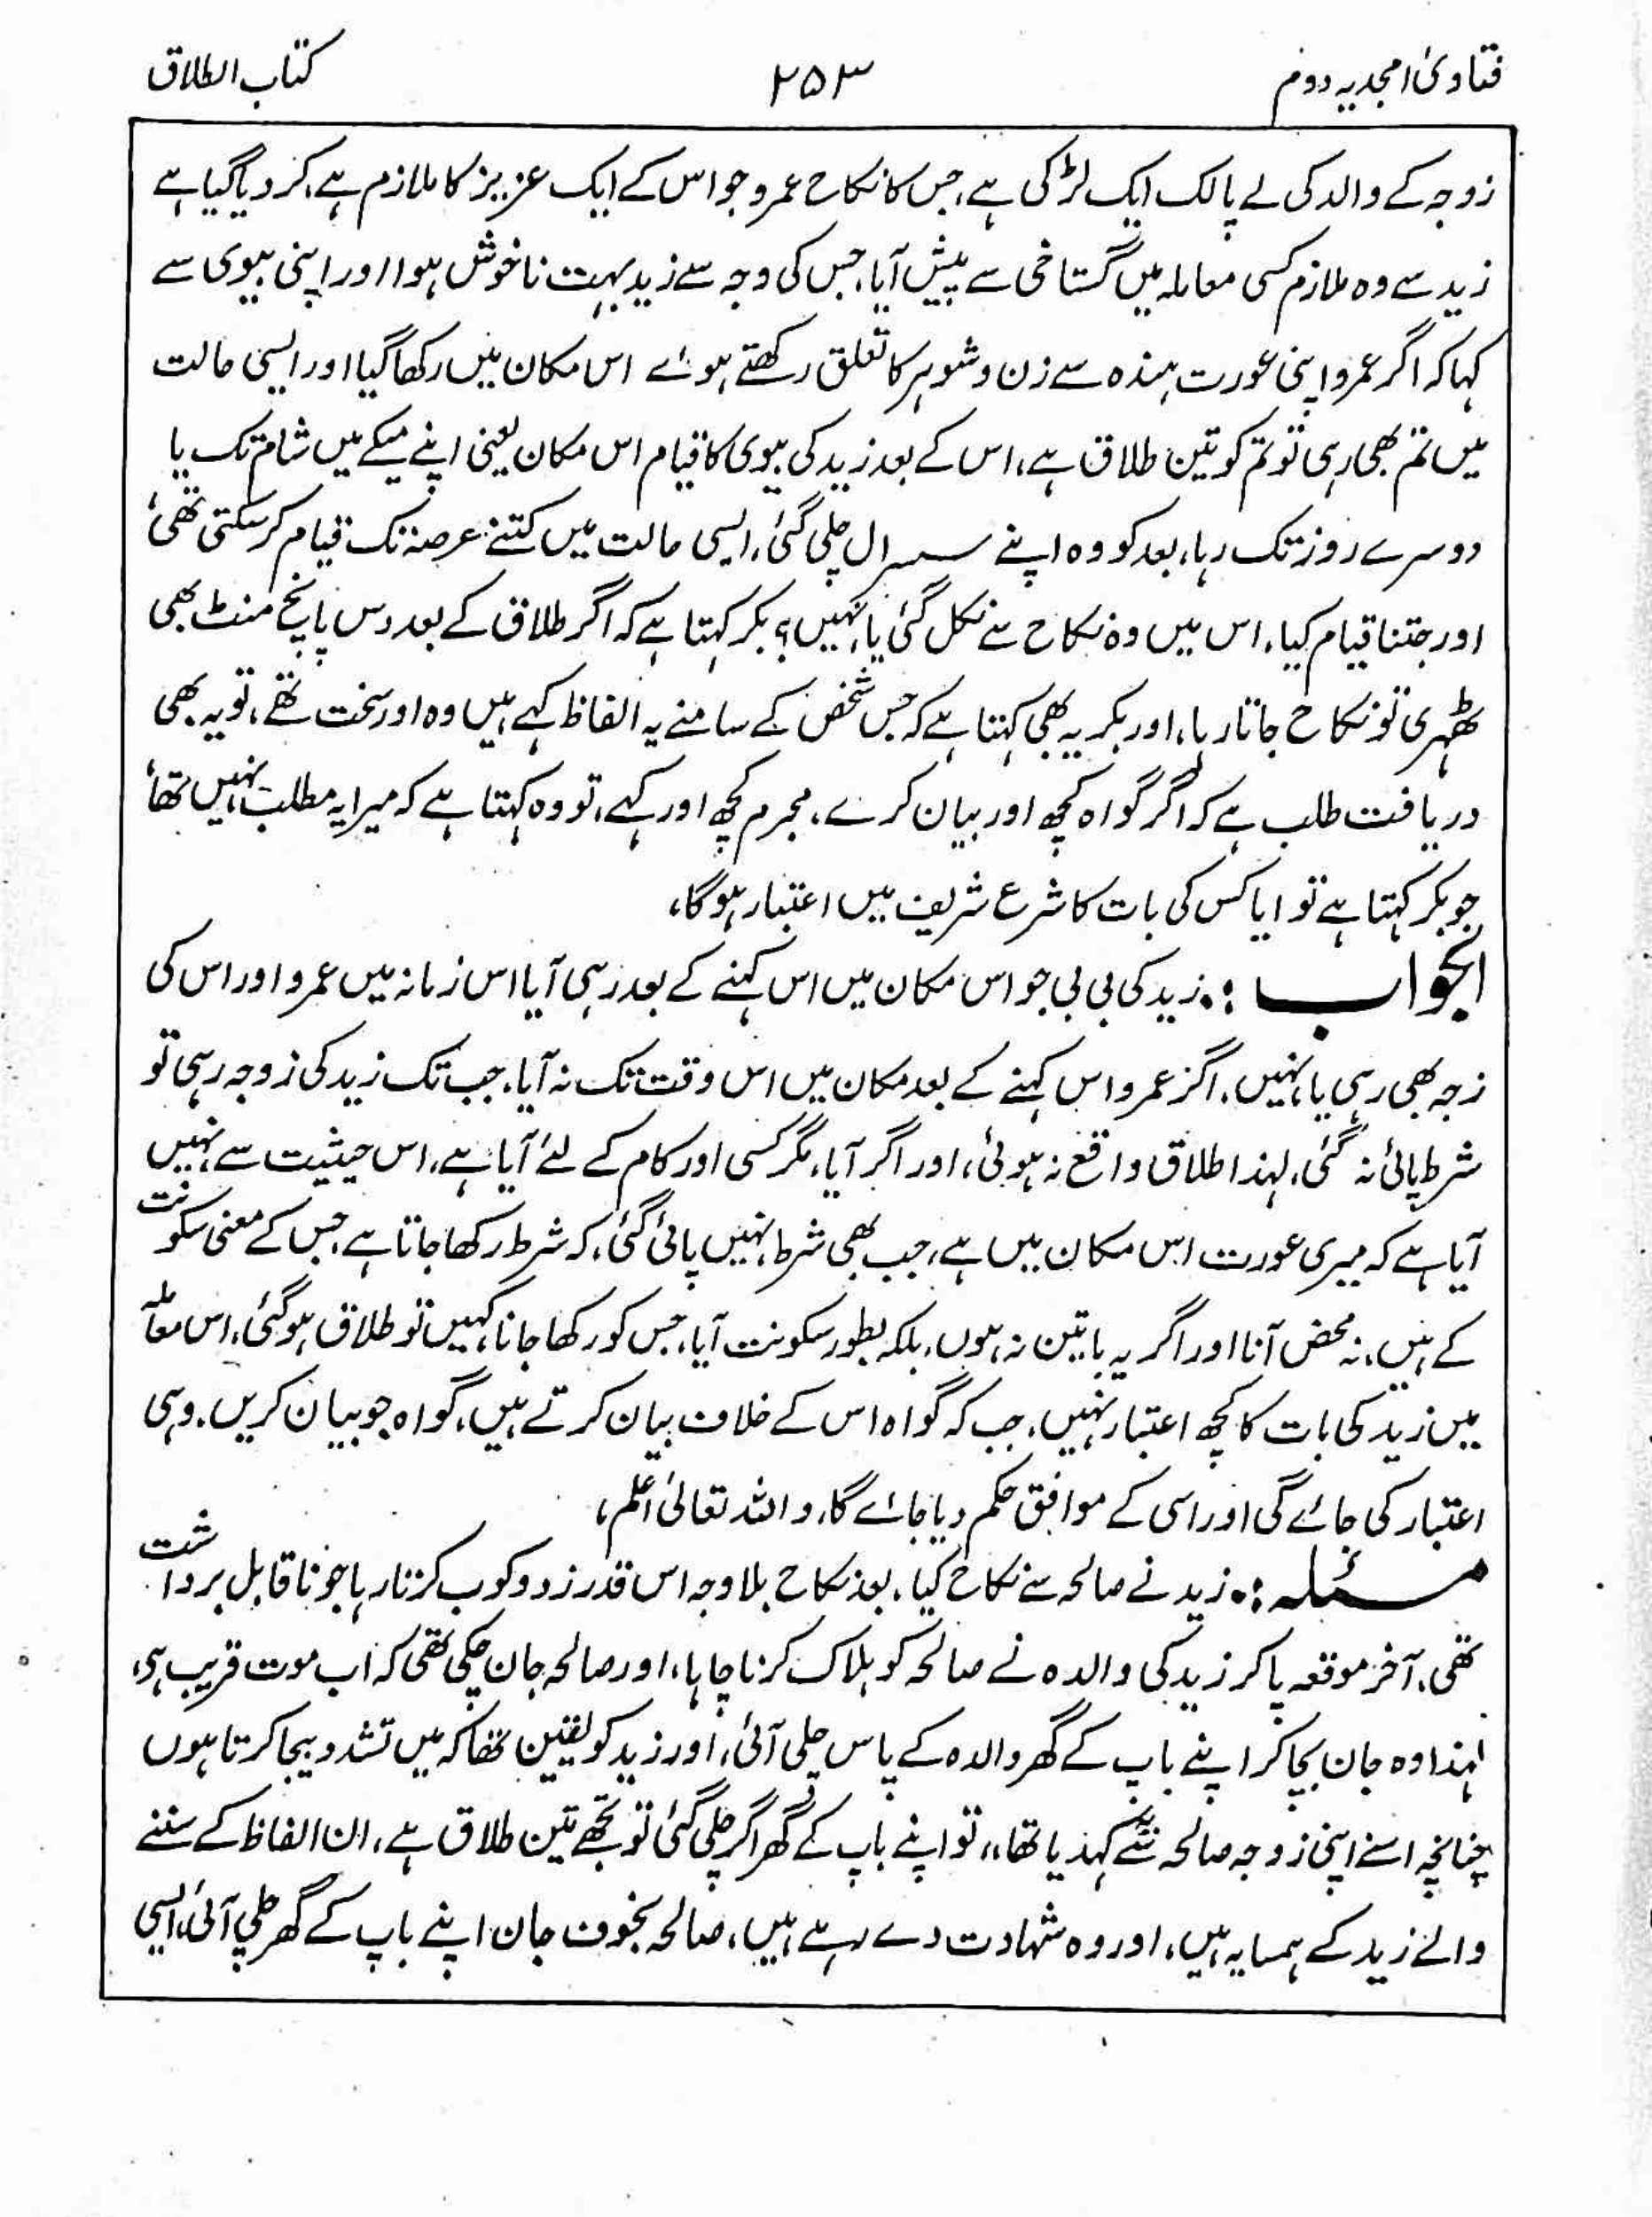 فتاویٰ امجدیہ دوم ۲۵۳ کتاب الطلاق
زوجہ کے والد کی لے پالک ایک لڑکی ہے، جس کا نکاح عمرو جو اس کے ایک عزیز کا ملازم ہے، کر دیا گیا ہے
زید سے وہ ملازم کسی معاملہ میں گستاخی سے پیش آیا، جس کی وجہ سے زید بہت ناخوش ہوا اور اپنی بیوی سے
کہا کہ اگر عمرو اپنی عورت ہندہ سے زن و شوہر کا تعلق رکھتے ہوئے اس مکان میں رکھا گیا اور ایسی حالت
میں تم بھی رہی تو تم کو تین طلاق ہے، اس کے بعد زید کی بیوی کا قیام اس مکان یعنی اپنے میکے میں شام تک یا
دوسرے روز تک رہا، بعد کو وہ اپنے سسرال چلی گئی، ایسی حالت میں کتنے عرصہ تک قیام کر سکتی تھی،
اور جتنا قیام کیا، اس میں وہ نکاح سے نکل گئی یا نہیں؟ بکر کہتا ہے کہ اگر طلاق کے بعد دس پانچ منٹ بھی
ٹھہری تو نکاح جاتا رہا، اور بکر یہ بھی کہتا ہے کہ جس شخص کے سامنے یہ الفاظ کہے ہیں وہ اور سخت تھے، تو یہ بھی
دریافت طلب ہے کہ اگر گواہ کچھ اور بیان کرے، مجرم کچھ اور کہے، تو وہ کہتا ہے کہ میرا یہ مطلب نہیں تھا،
جو بکر کہتا ہے تو ایا کس کی بات کا شرع شریف میں اعتبار ہوگا،
الجواب :۔ زید کی بی بی جو اس مکان میں اس کہنے کے بعد رہی آیا اس زمانہ میں عمرو اور اس کی
زجہ بھی رہی یا نہیں، اگر عمرو اس کہنے کے بعد مکان میں اس وقت تک نہ آیا، جب تک زید کی زوجہ رہی تو
شرط پائی نہ گئی، لہذا طلاق واقع نہ ہوئی، اور اگر آیا، مگر کسی اور کام کے لئے آیا ہے، اس حیثیت سے نہیں
آیا ہے کہ میری عورت اس مکان میں ہے، جب بھی شرط نہیں پائی گئی، کہ شرط رکھا جاتا ہے، جس کے معنی سکونت
کے ہیں، نہ محض آنا اور اگر یہ باتین نہ ہوں، بلکہ بطور سکونت آیا، جس کو رکھا جانا کہیں تو طلاق ہو گئی، اس معاملہ
میں زید کی بات کا کچھ اعتبار نہیں، جب کہ گواہ اس کے خلاف بیان کرتے ہیں، گواہ جو بیان کریں، وہی
اعتبار کی جائے گی اور اسی کے موافق حکم دیا جائے گا، واللہ تعالیٰ اعلم،
مسئلہ :۔ زید نے صالحہ سے نکاح کیا، بعد نکاح بلا وجہ اس قدر زد و کوب کرتا رہا جو ناقابل برداشت
تھی، آخر موقعہ پا کر زید کی والدہ نے صالحہ کو ہلاک کرنا چاہا، اور صالحہ جان چکی تھی کہ اب موت قریب ہی،
لہذا وہ جان بچا کر اپنے باپ کے گھر والدہ کے پاس چلی آئی، اور زید کو یقین تھا کہ میں تشدد بیجا کرتا ہوں
چنانچہ اسنے اپنی زوجہ صالحہ سے کہدیا تھا،، تو اپنے باپ کے گھر اگر چلی گئی تو تجھے تین طلاق ہے، ان الفاظ کے سننے
والے زید کے ہمسایہ ہیں، اور وہ شہادت دے رہے ہیں، صالحہ بخوف جان اپنے باپ کے گھر چلی آئی، ایسی